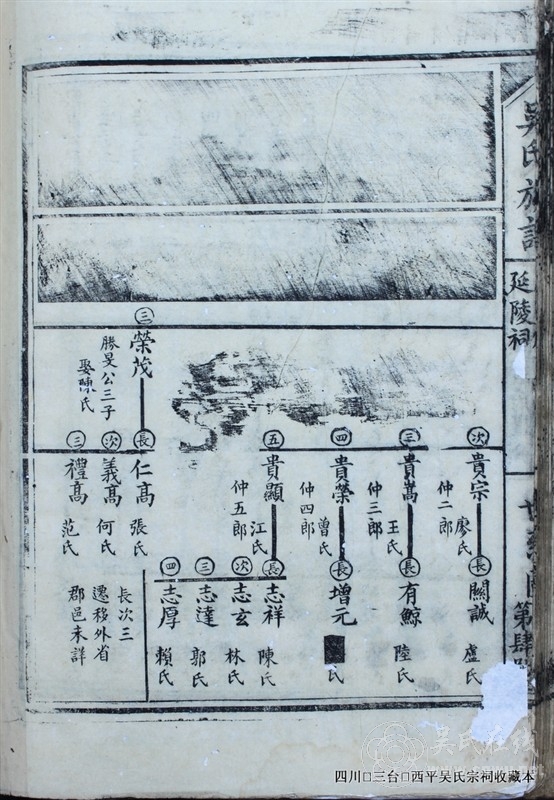 吳氏族譜
延陵祠
世系圖 第肆
次 貴宗 廖氏
仲二郎
長 關誠 盧氏
三 貴嵩 王氏
仲三郎
長 有鯨 陸氏
四 貴榮 曾氏
仲四郎
長 增元 氏
五 貴顯 江氏
仲五郎
長 志祥 陳氏
次 志玄 林氏
三 志達 郭氏
四 志厚 賴氏
三 榮茂
勝旻公三子
娶陳氏
長 仁高 張氏
次 義高 何氏
三 禮高 范氏
長次三
遷移外省
郡邑未詳
吴氏在线
四川□三台□西平吴氏宗祠收藏本